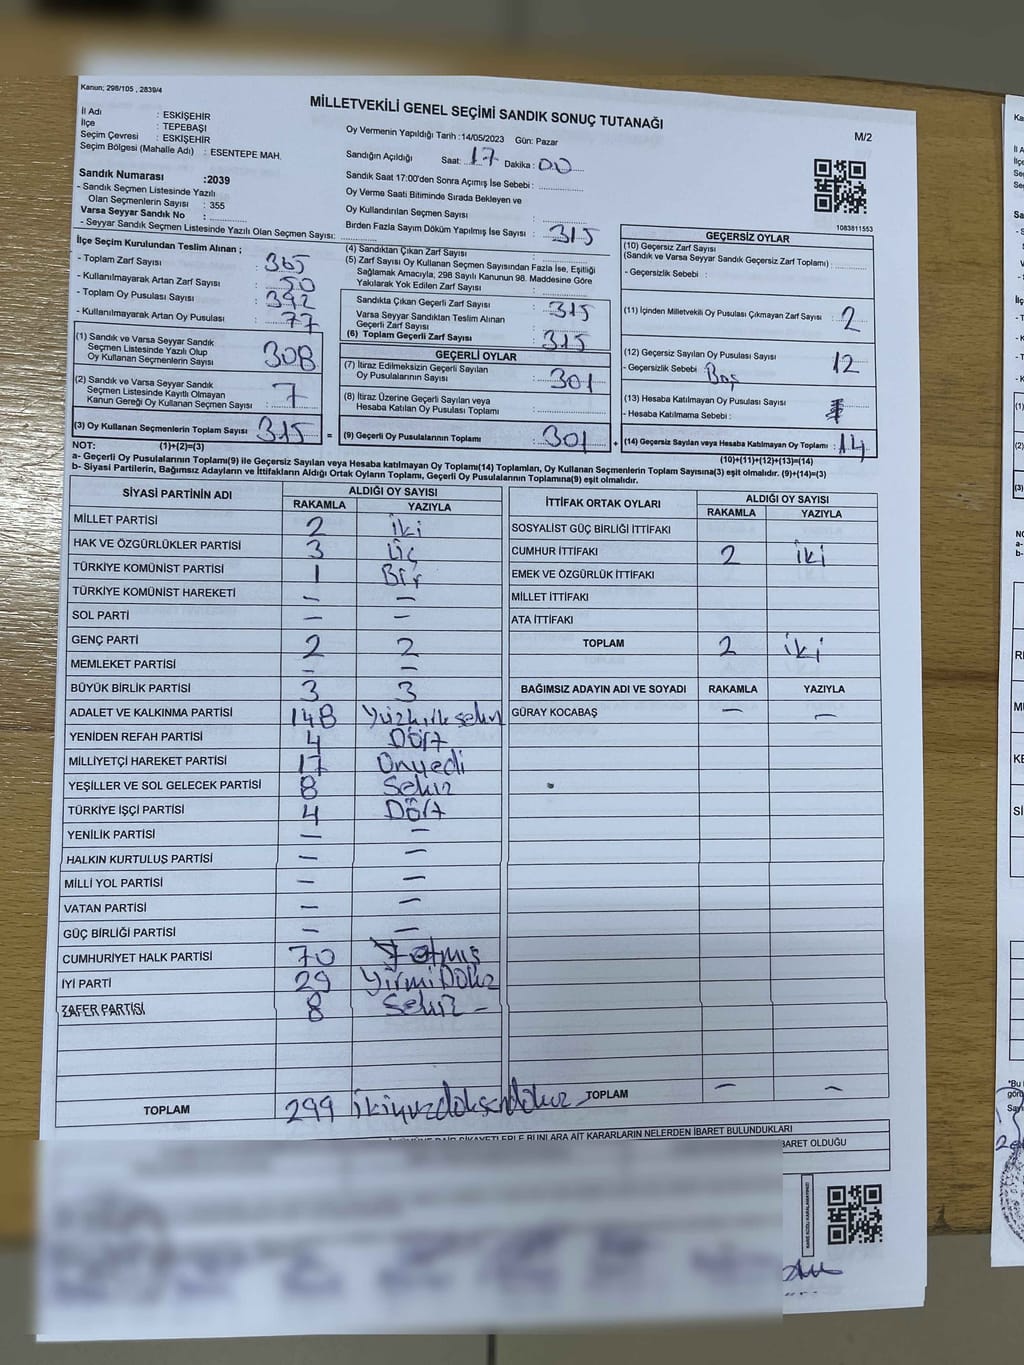 Kanun; 298/105 , 2839/4
MİLLETVEKİLİ GENEL SEÇİMİ SANDIK SONUÇ TUTANAĞI
M/2
İl Adı : ESKİŞEHİR
İlçe : TEPEBAŞI
Seçim Çevresi : ESKİŞEHİR
Seçim Bölgesi (Mahalle Adı) : ESENTEPE MAH.
Oy Vermenin Yapıldığı Tarih :14/05/2023 Gün: Pazar
Sandığın Açıldığı Saat: 17 Dakika : 00
Sandık Saat 17:00'den Sonra Açımış İse Sebebi :
Oy Verme Saati Bitiminde Sırada Bekleyen ve
Oy Kullandırılan Seçmen Sayısı :
Birden Fazla Sayım Döküm Yapılmış İse Sayısı : 315
Sandık Numarası :2039
- Sandık Seçmen Listesinde Yazılı
Olan Seçmenlerin Sayısı : 355
Varsa Seyyar Sandık No :
- Seyyar Sandık Seçmen Listesinde Yazılı Olan Seçmen Sayısı:
1083811553
İlçe Seçim Kurulundan Teslim Alınan ;
- Toplam Zarf Sayısı : 365
- Kullanılmayarak Artan Zarf Sayısı : 50
- Toplam Oy Pusulası Sayısı : 392
- Kullanılmayarak Artan Oy Pusulası : 77
(1) Sandık ve Varsa Seyyar Sandık
Seçmen Listesinde Yazılı Olup
Oy Kullanan Seçmenlerin Sayısı : 308
(2) Sandık ve Varsa Seyyar Sandık
Seçmen Listesinde Kayıtlı Olmayan
Kanun Gereği Oy Kullanan Seçmen Sayısı : 7
(3) Oy Kullanan Seçmenlerin Toplam Sayısı : 315 =
(4) Sandıktan Çıkan Zarf Sayısı :
(5) Zarf Sayısı Oy Kullanan Seçmen Sayısından Fazla İse, Eşitliği
Sağlamak Amacıyla, 298 Sayılı Kanunun 98. Maddesine Göre
Yakılarak Yok Edilen Zarf Sayısı :
Sandıkta Çıkan Geçerli Zarf Sayısı : 315
Varsa Seyyar Sandıktan Teslim Alınan
Geçerli Zarf Sayısı :
(6) Toplam Geçerli Zarf Sayısı : 315
GEÇERLİ OYLAR
(7) İtiraz Edilmeksizin Geçerli Sayılan
Oy Pusulalarının Sayısı : 301
(8) İtiraz Üzerine Geçerli Sayılan veya
Hesaba Katılan Oy Pusulası Toplamı :
(9) Geçerli Oy Pusulalarının Toplamı : 301 +
GEÇERSİZ OYLAR
(10) Geçersiz Zarf Sayısı
(Sandık ve Varsa Sandık Geçersiz Zarf Toplamı) :
- Geçersizlik Sebebi :
(11) İçinden Milletvekili Oy Pusulası Çıkmayan Zarf Sayısı : 2
(12) Geçersiz Sayılan Oy Pusulası Sayısı : 12
- Geçersizlik Sebebi : Boş
(13) Hesaba Katılmayan Oy Pusulası Sayısı :
- Hesaba Katılmama Sebebi :
(14) Geçersiz Sayılan veya Hesaba Katılmayan Oy Toplamı : 14
NOT: (1)+(2)=(3)
(10)+(11)+(12)+(13)=(14)
a- Geçerli Oy Pusulalarının Toplamı(9) ile Geçersiz Sayılan veya Hesaba katılmayan Oy Toplamı(14) Toplamları, Oy Kullanan Seçmenlerin Toplam Sayısına(3) eşit olmalıdır. (9)+(14)=(3)
b- Siyasi Partilerin, Bağımsız Adayların ve İttifakların Aldığı Ortak Oyların Toplamı, Geçerli Oy Pusulalarının Toplamına(9) eşit olmalıdır.
SİYASİ PARTİNİN ADI ALDIĞI OY SAYISI
RAKAMLA YAZIYLA
MİLLET PARTİSİ 2 iki
HAK VE ÖZGÜRLÜKLER PARTİSİ 3 üç
TÜRKİYE KOMÜNİST PARTİSİ 1 Bir
TÜRKİYE KOMÜNİST HAREKETİ – –
SOL PARTİ – –
GENÇ PARTİ 2 2
MEMLEKET PARTİSİ – –
BÜYÜK BİRLİK PARTİSİ 3 3
ADALET VE KALKINMA PARTİSİ 148 Yüzkırksekiz
YENİDEN REFAH PARTİSİ 4 Dört
MİLLİYETÇİ HAREKET PARTİSİ 17 Onyedi
YEŞİLLER VE SOL GELECEK PARTİSİ 8 Sekiz
TÜRKİYE İŞÇİ PARTİSİ 4 Dört
YENİLİK PARTİSİ – –
HALKIN KURTULUŞ PARTİSİ – –
MİLLİ YOL PARTİSİ – –
VATAN PARTİSİ – –
GÜÇ BİRLİĞİ PARTİSİ – –
CUMHURİYET HALK PARTİSİ 70 Yetmiş
İYİ PARTİ 29 YirmiDokuz
ZAFER PARTİSİ 8 Sekiz –
TOPLAM 299 ikiyüzdoksandokuz
İTTİFAK ORTAK OYLARI ALDIĞI OY SAYISI
RAKAMLA YAZIYLA
SOSYALİST GÜÇ BİRLİĞİ İTTİFAKI
CUMHUR İTTİFAKI 2 iki
EMEK VE ÖZGÜRLÜK İTTİFAKI
MİLLET İTTİFAKI
ATA İTTİFAKI
TOPLAM 2 iki
BAĞIMSIZ ADAYIN ADI VE SOYADI RAKAMLA YAZIYLA
GÜRAY KOCABAŞ – –
TOPLAM – –
BUNLARA AİT KARARLARIN NELERDEN İBARET BULUNDUKLARI
İBARET OLDUĞU